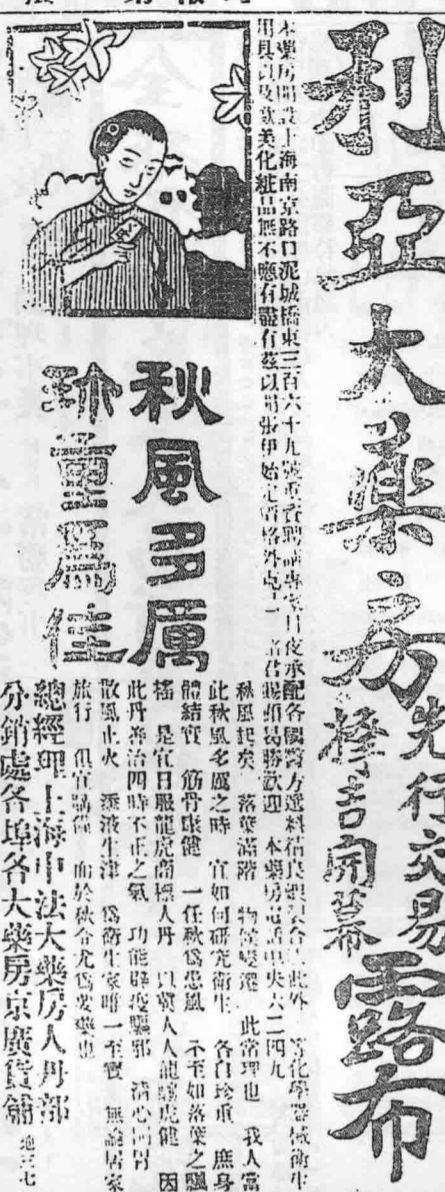 利亞大藥房先行交易擇吉開幕露布
本藥房開設上海南京路口泥城橋東三百六十九號重資聘請專家日夜承配各國醫方選料精良
用具以及歐美化粧品無不應有盡有茲以開張伊始定價格外克己諸君賜顧曷勝歡迎 本藥房電話中央六二四九
秋風多厲
珍重爲佳
秋風起矣 落葉滿階 物候變遷 此常理也 我人當
此秋風多厲之時 宜如何研究衛生 各自珍重 庶身
體結實 筋骨康健 一任秋爲悲風 不至如落葉之飄
搖 是宜日服龍虎商標人丹 以冀人人龍驤虎健 因
此丹善治四時不正之氣 功能辟疫驅邪 清心開胃
散風止火 添液生津 爲衛生家唯一至寶 無論居家
旅行 俱宜 而於秋令尤爲要藥也
總經理上海中法大藥房人丹部
分銷處各埠各大藥房京廣貨舖